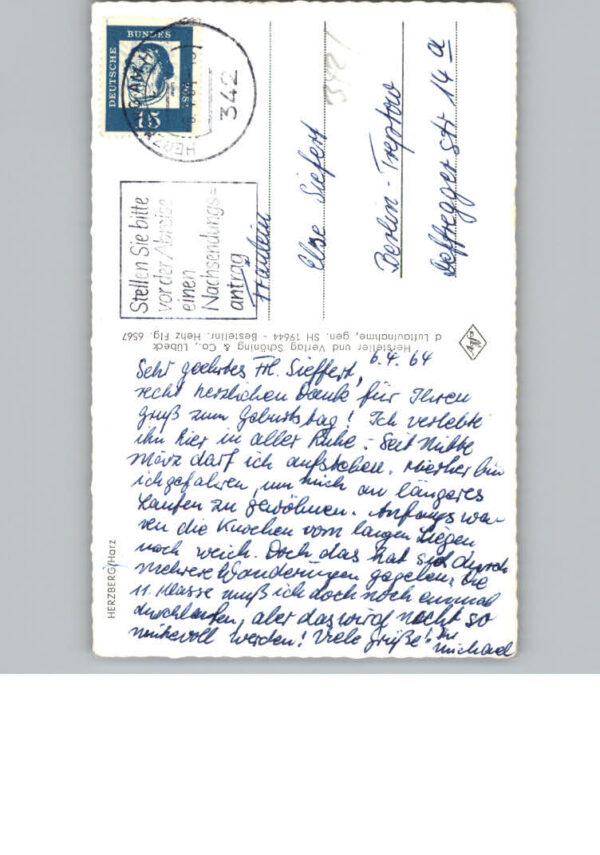 DEUTSCHE
BUNDES
15
HERZBERG
342
342
Stellen Sie bitte
vor der Abreise
einen
Nachsendungs=
antrag
Fräulein
Else Siefert
Berlin-Treptow
Defregger str 14 a
Hersteller und Verlag Schöning & Co., Lübeck
d Luftaufnahme, gen. SH 19644 - Bestellnr. Hehz Flg. 6567
HERZBERG/Harz
6.4.64
Sehr geehrtes Frl. Sieffert,
recht herzlichen Dank für Ihren
Gruß zum Geburtstag! Ich verlebte
ihn hier in aller Ruhe. Seit Mitte
März darf ich aufstehen. Hierher bin
ich gefahren, um mich an längeres
Laufen zu gewöhnen. Anfangs wa-
ren die Knochen vom langen Liegen
noch weich. Doch das hat sich durch
mehrere Wanderungen gegeben. Die
11. Klasse muß ich doch noch einmal
durchlaufen, aber das wird nicht so
mühevoll werden! Viele Grüße! Ihr
Michael